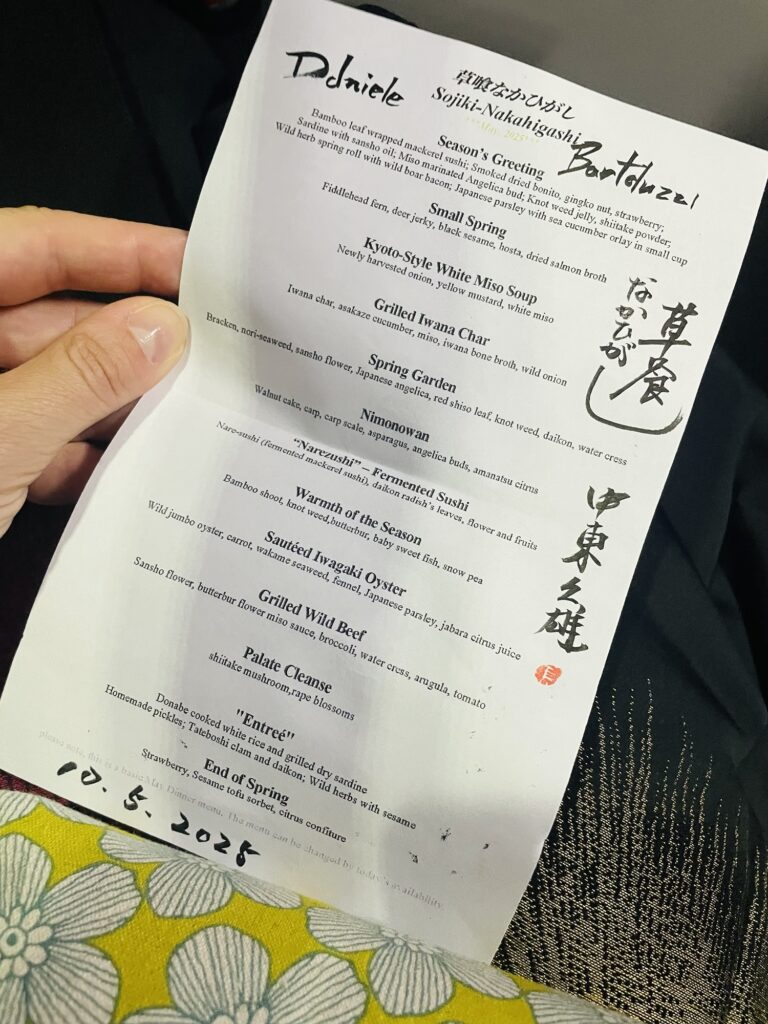 Ddniele
草喰なかひがし
Sojiki-Nakahigashi
***May, 2025***
Bartoluzzi
Season's Greeting
Bamboo leaf wrapped mackerel sushi; Smoked dried bonito, gingko nut, strawberry;
Sardine with sansho oil; Miso marinated Angelica bud; Knot weed jelly, shiitake powder;
Wild herb spring roll with wild boar bacon; Japanese parsley with sea cucumber orlay in small cup
Small Spring
Fiddlehead fern, deer jerky, black sesame, hosta, dried salmon broth
Kyoto-Style White Miso Soup
Newly harvested onion, yellow mustard, white miso
Grilled Iwana Char
Iwana char, asakaze cucumber, miso, iwana bone broth, wild onion
Spring Garden
Bracken, nori-seaweed, sansho flower, Japanese angelica, red shiso leaf, knot weed, daikon, water cress
Nimonowan
Walnut cake, carp, carp scale, asparagus, angelica buds, amanatsu citrus
"Narezushi" – Fermented Sushi
Nare-sushi (fermented mackerel sushi), daikon radish's leaves, flower and fruits
Warmth of the Season
Bamboo shoot, knot weed,butterbur, baby sweet fish, snow pea
Sautéed Iwagaki Oyster
Wild jumbo oyster, carrot, wakame seaweed, fennel, Japanese parsley, jabara citrus juice
Grilled Wild Beef
Sansho flower, butterbur flower miso sauce, broccoli, water cress, arugula, tomato
Palate Cleanse
shiitake mushroom,rape blossoms
"Entreé"
Donabe cooked white rice and grilled dry sardine
Homemade pickles; Tateboshi clam and daikon; Wild herbs with sesame
End of Spring
Strawberry, Sesame tofu sorbet, citrus confiture
please note, this is a basic May Dinner menu. The menu can be changed by today's availability.
10.5.2025
草食
なかひがし
中東久雄